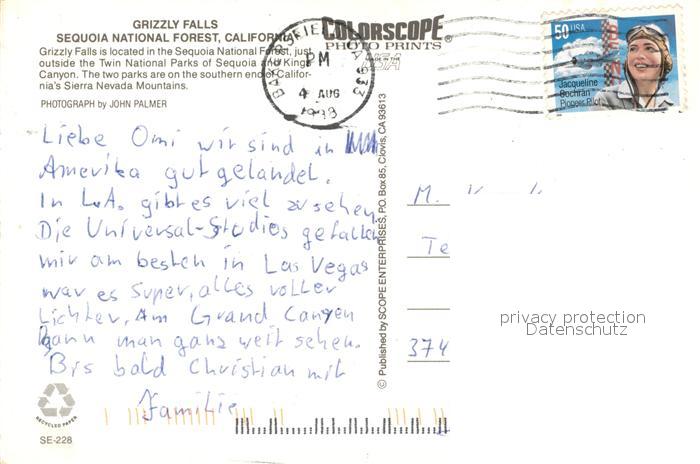 GRIZZLY FALLS
SEQUOIA NATIONAL FOREST, CALIFORNIA
Grizzly Falls is located in the Sequoia National Forest, just
outside the Twin National Parks of Sequoia and Kings
Canyon. The two parks are on the southern end of Califor-
nia's Sierra Nevada Mountains.
PHOTOGRAPH by JOHN PALMER
COLORSCOPE®
PHOTO PRINTS
MADE IN THE
USA
PM
4 AUG
50 USA
Jacqueline
Cochran
Pioneer Pilot
Liebe Omi wir sind in
Amerika gut gelandet.
In L.A. gibt es viel zu sehen
Die Universal-Studios gefallen
mir am besten in Las Vegas
war es super, alles voller
Lichter, Am Grand Canyen
kann man ganz weit sehen.
Bis bald Christian mit
Familie
© Published by SCOPE ENTERPRISES, P.O. Box 85, Clovis, CA 93613
M.
Te
374
privacy protection
Datenschutz
RECYCLED PAPER
SE-228